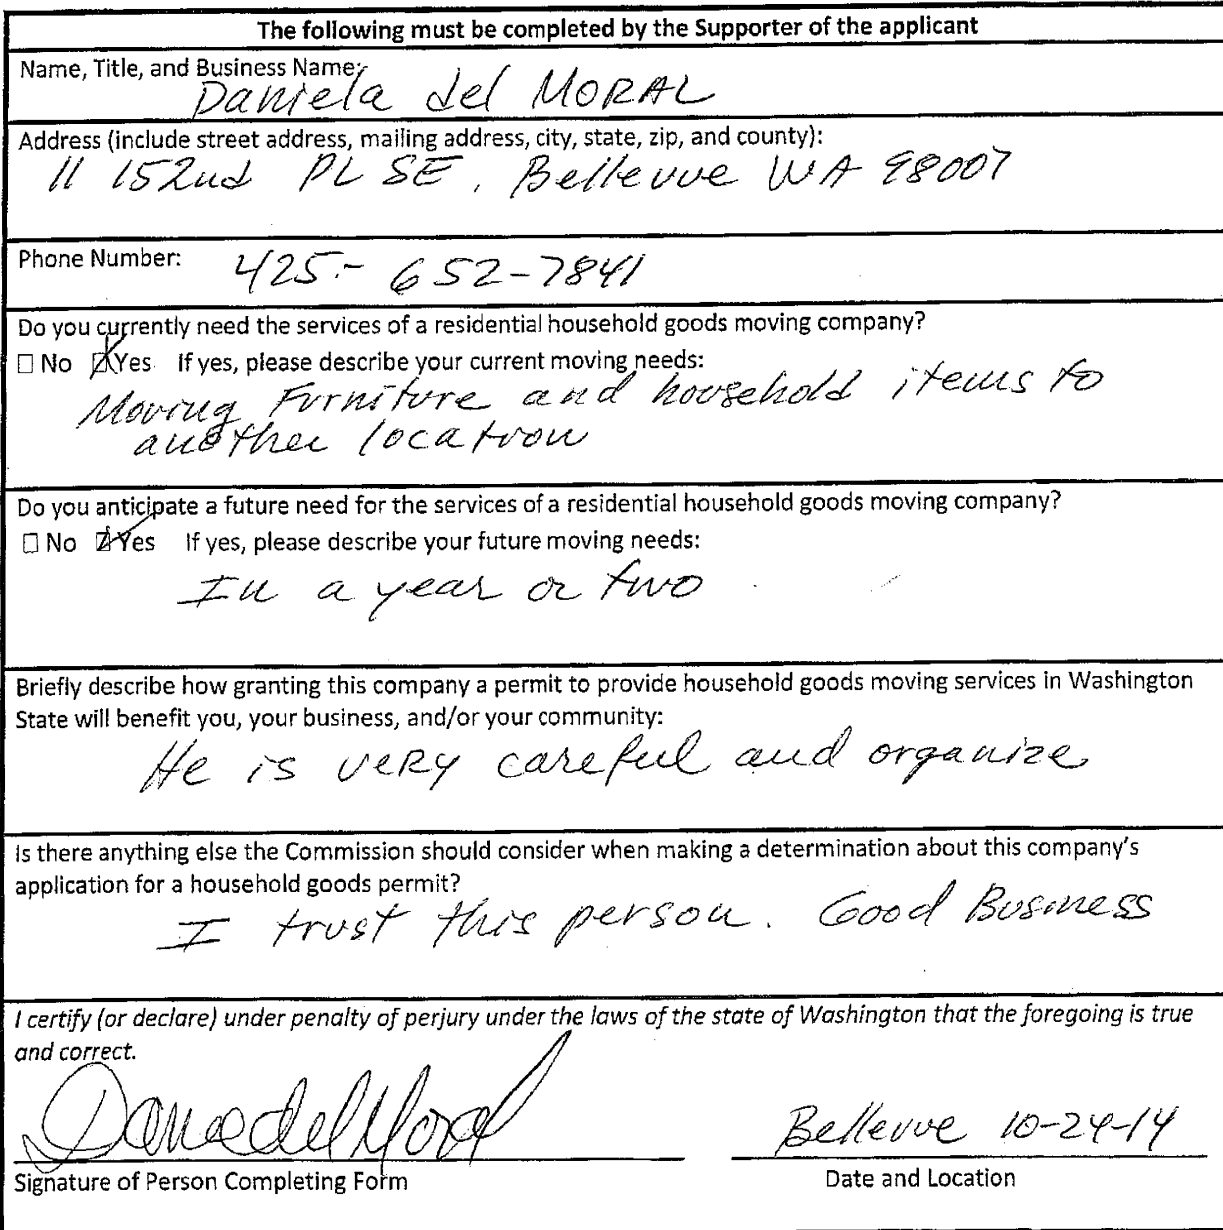 The following must be completed by the Supporter of the applicant
Name, Title, and Business Name:
Daniela del MORAL
Address (include street address, mailing address, city, state, zip, and county):
11 152nd PL SE, Bellevue WA 98007
Phone Number: 425-652-7841
Do you currently need the services of a residential household goods moving company?
☐ No ☒ Yes If yes, please describe your current moving needs:
Moving Furniture and household items to
another location
Do you anticipate a future need for the services of a residential household goods moving company?
☐ No ☒ Yes If yes, please describe your future moving needs:
In a year or two
Briefly describe how granting this company a permit to provide household goods moving services in Washington
State will benefit you, your business, and/or your community:
He is very careful and organize
Is there anything else the Commission should consider when making a determination about this company's
application for a household goods permit?
I trust this person. Good Business
I certify (or declare) under penalty of perjury under the laws of the state of Washington that the foregoing is true
and correct.
Daniela del Moral
Bellevue 10-24-14
Signature of Person Completing Form
Date and Location